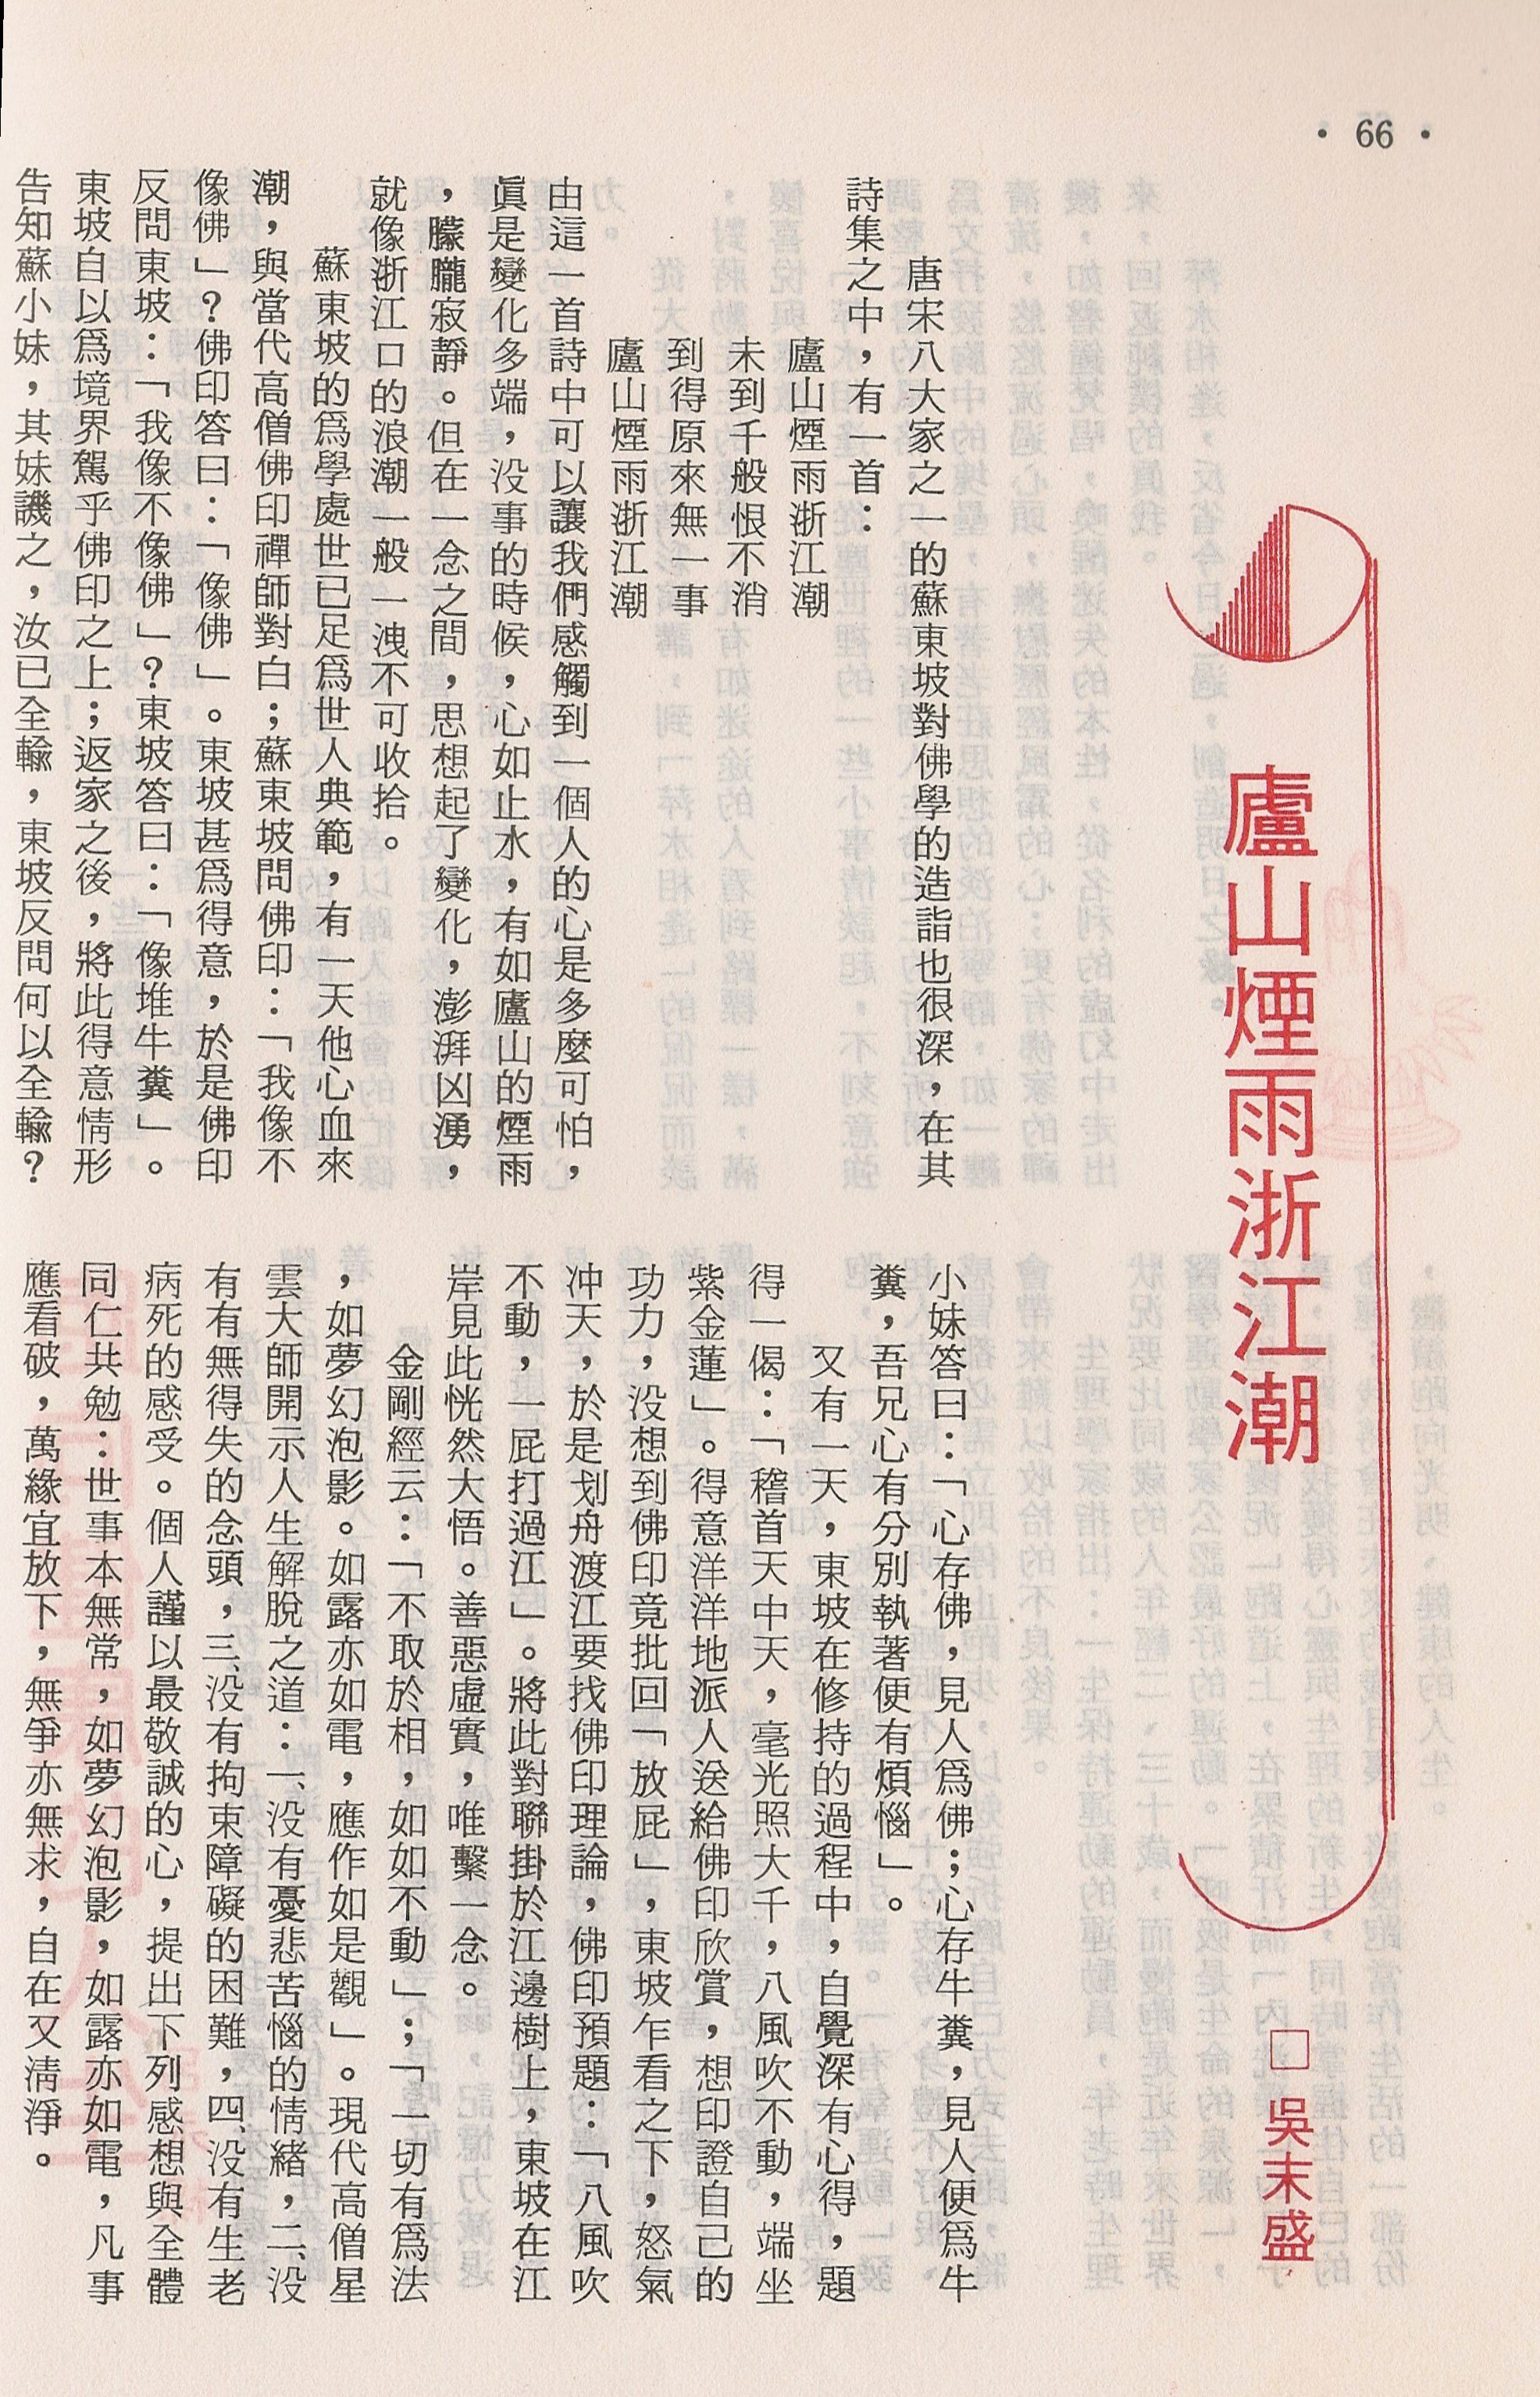 • 66 •
廬山煙雨浙江潮
□ 吳末盛
唐宋八大家之一的蘇東坡對佛學的造詣也很深，在其
詩集之中，有一首：
廬山煙雨浙江潮
未到千般恨不消
到得原來無一事
廬山煙雨浙江潮
由這一首詩中可以讓我們感觸到一個人的心是多麼可怕，
眞是變化多端，没事的時候，心如止水，有如廬山的煙雨
，朦朧寂靜。但在一念之間，思想起了變化，澎湃凶湧，
就像浙江口的浪潮一般一洩不可收拾。
蘇東坡的爲學處世已足爲世人典範，有一天他心血來
潮，與當代高僧佛印禪師對白；蘇東坡問佛印：「我像不
像佛」？佛印答曰：「像佛」。東坡甚爲得意，於是佛印
反問東坡：「我像不像佛」？東坡答曰：「像堆牛糞」。
東坡自以爲境界駕乎佛印之上；返家之後，將此得意情形
告知蘇小妹，其妹譏之，汝已全輸，東坡反問何以全輸？
小妹答曰：「心存佛，見人爲佛；心存牛糞，見人便爲牛
糞，吾兄心有分別執著便有煩惱」。
又有一天，東坡在修持的過程中，自覺深有心得，題
得一偈：「稽首天中天，毫光照大千，八風吹不動，端坐
紫金蓮」。得意洋洋地派人送給佛印欣賞，想印證自己的
功力，没想到佛印竟批回「放屁」，東坡乍看之下，怒氣
冲天，於是划舟渡江要找佛印理論，佛印預題：「八風吹
不動，一屁打過江」。將此對聯掛於江邊樹上，東坡在江
岸見此恍然大悟。善惡虛實，唯繫一念。
金剛經云：「不取於相，如如不動」；「一切有爲法
，如夢幻泡影。如露亦如電，應作如是觀」。現代高僧星
雲大師開示人生解脫之道：一、没有憂悲苦惱的情緒，二、没
有有無得失的念頭，三、没有拘束障礙的困難，四、没有生老
病死的感受。個人謹以最敬誠的心，提出下列感想與全體
同仁共勉：世事本無常，如夢幻泡影，如露亦如電，凡事
應看破，萬緣宜放下，無爭亦無求，自在又淸淨。